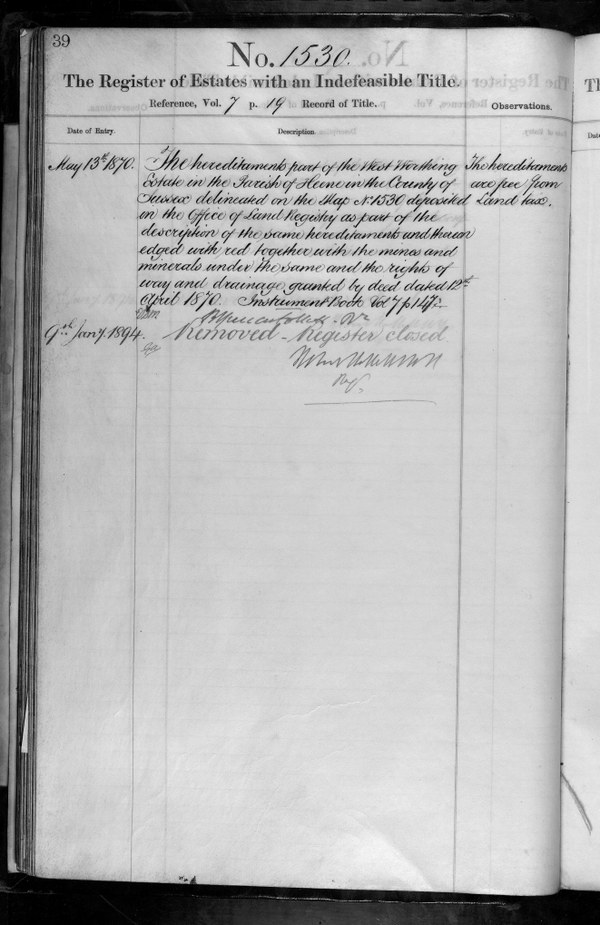 39
No. 1530.
The Register of Estates with an Indefeasible Title.
Reference, Vol. 7 p. 19 Record of Title.
Observations.
Date of Entry.
Description
May 13th 1870.
The hereditaments part of the West Worthing
Estate in the Parish of Heene in the County of
Sussex delineated on the Map No. 1530 deposited
in the Office of Land Registry as part of the
description of the same hereditaments and thereon
edged with red together with the mines and
minerals under the same and the rights of
way and drainage granted by deed dated 12th
April 1870. Instrument Book Vol 7 p
The hereditaments
are free from
Land tax.
9th Jany. 1894.
Removed - Register closed
Regr.